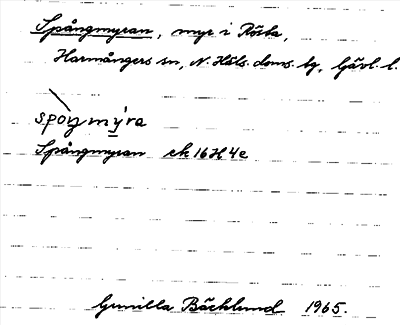 Spångmyran, myr i Rösta,
Harmångers sn, N. Häls. doms. tg, Gävl. l.
spòŋmýra
Spångmyran ek 16H4e
Gunilla Bäcklund 1965.